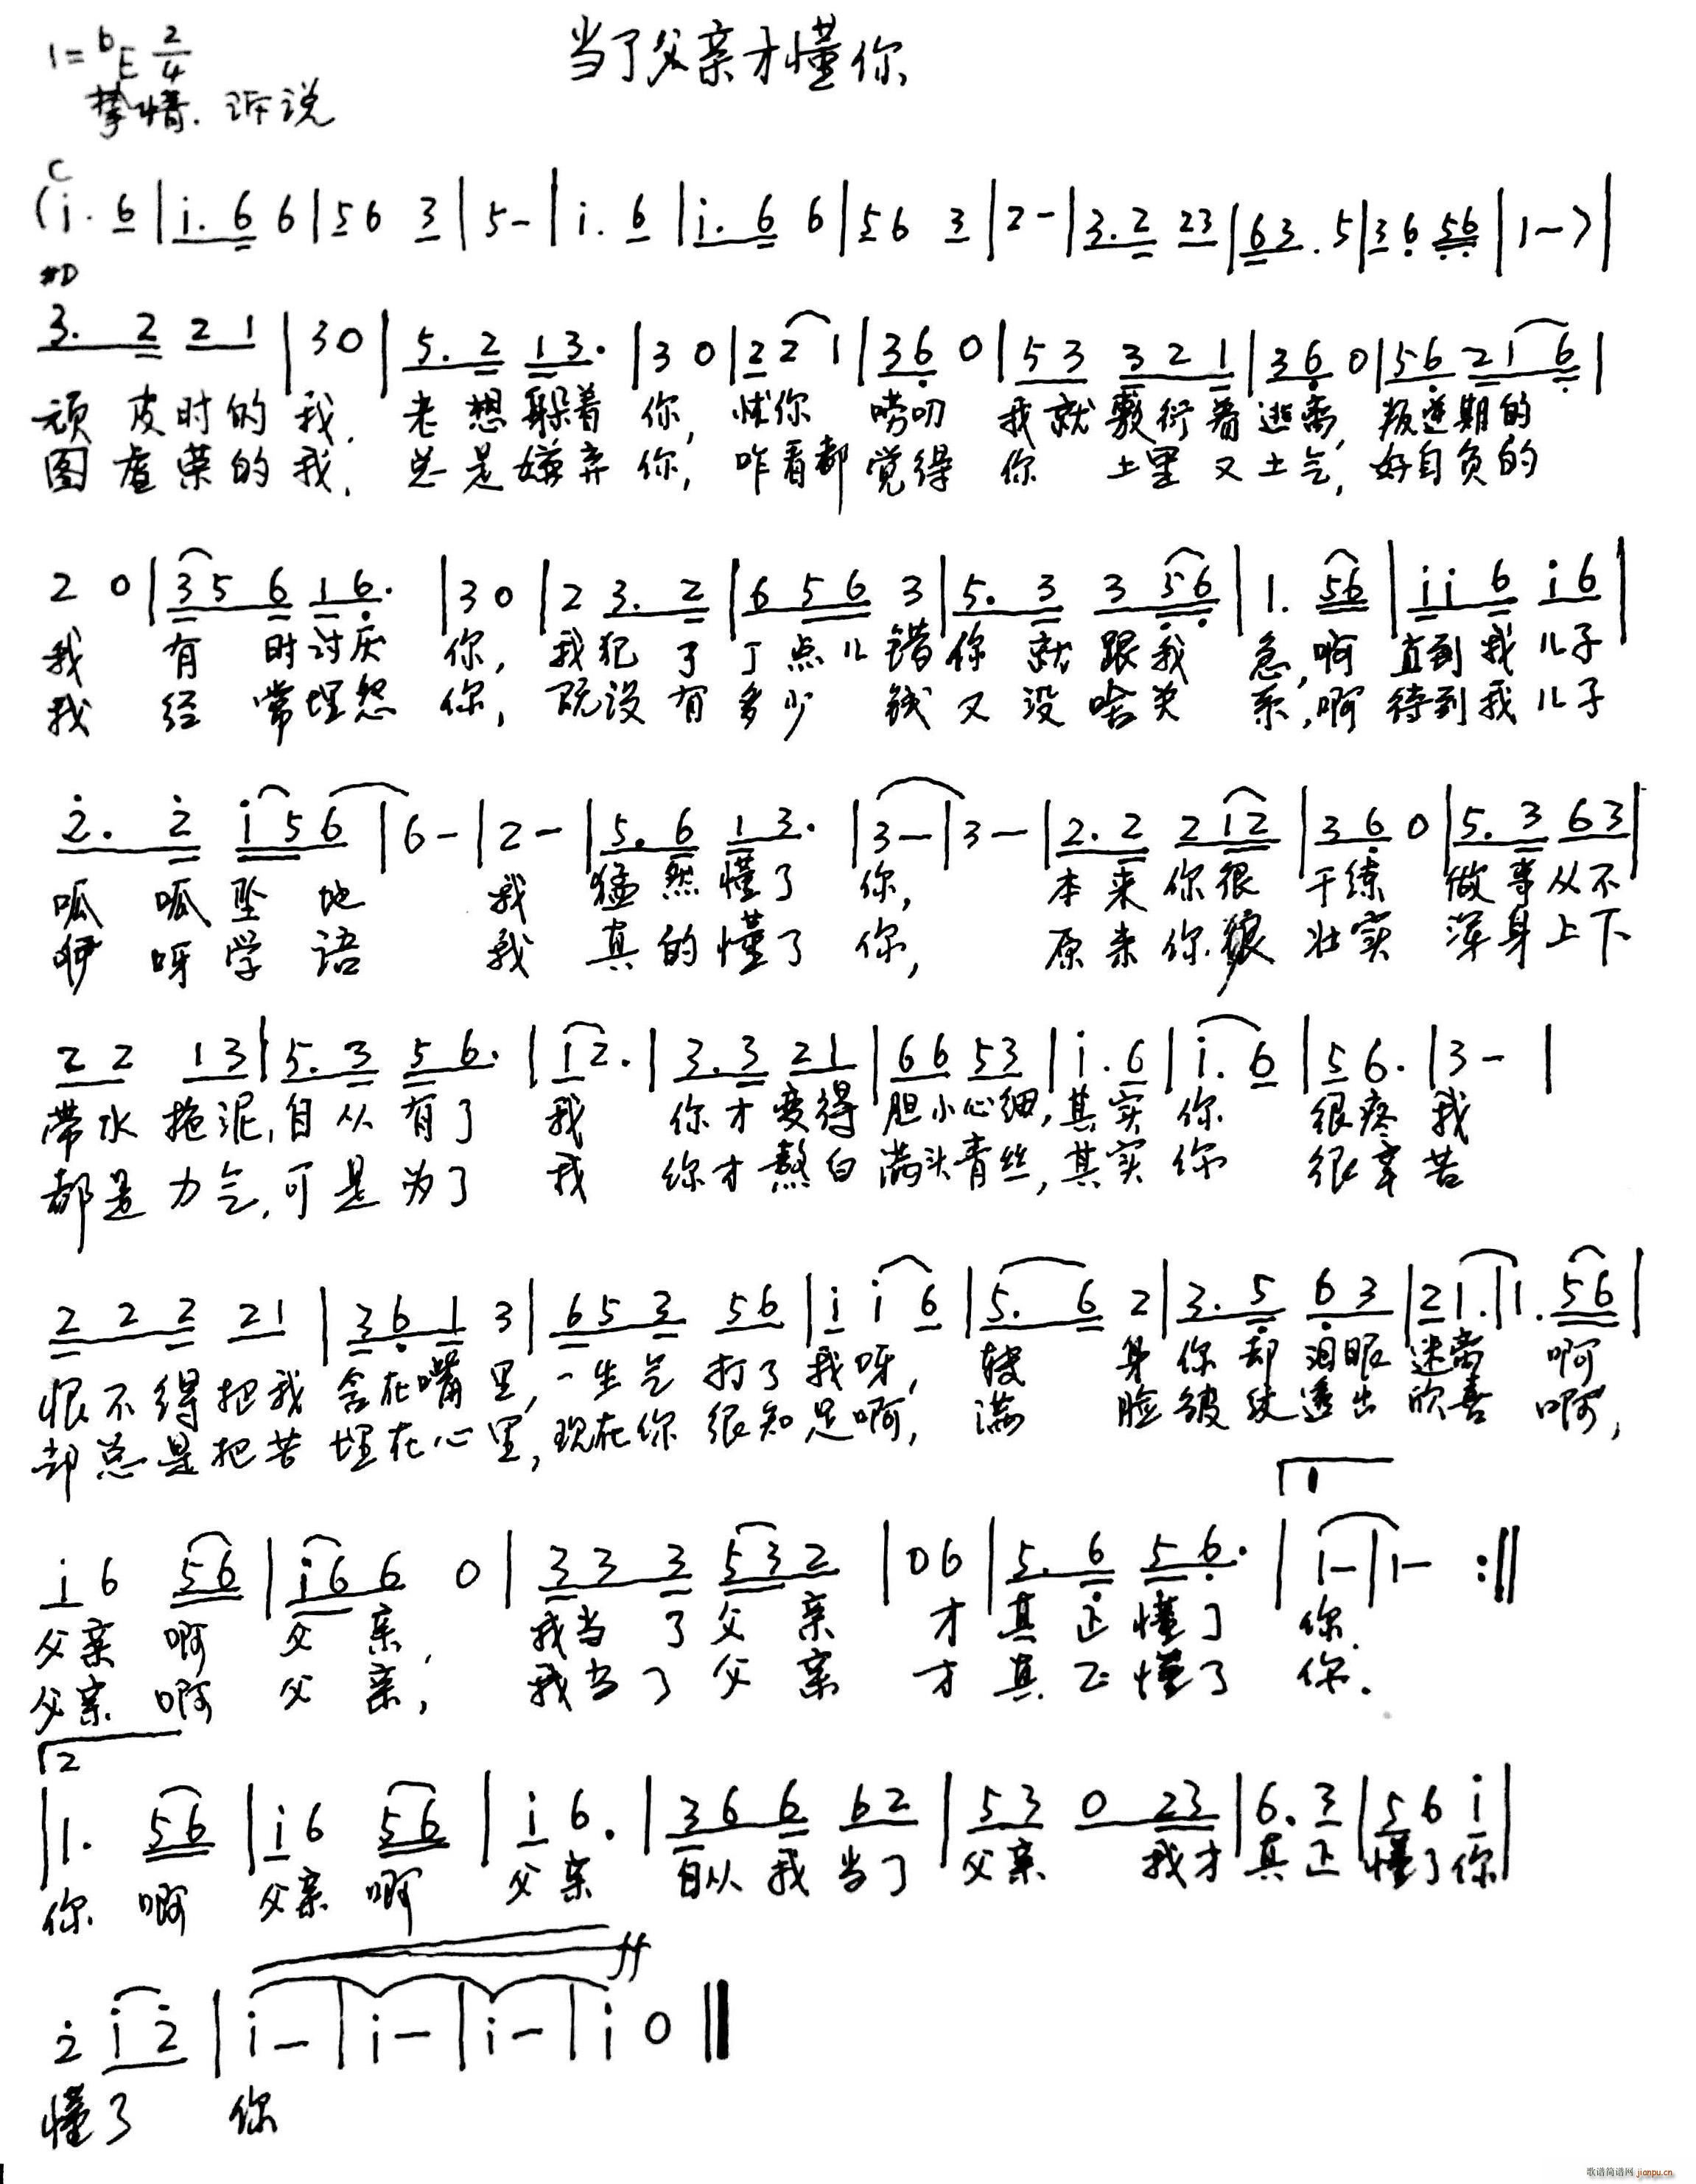 当了父亲才懂你
1=bE 2/4
挚情. 诉说
C
(i. 6|i. 6 6|56 3|5-|i. 6|i. 6 6|56 3|2-|3.2 23|63. 5|36 56|1-)|
#D
3. 2 2 1|30|5. 2 13.|3 0|22 1|36 0|53 3 2 1|36 0|56 21 6|
顽皮时的我, 老想躲着你, 忧你 唠叨 我就敷衍着逃离, 叛逆期的
图虚荣的我, 总是嫌弃你, 咋看都觉得你 土里又土气, 好自负的
2 0|35 6 16.|30|2 3. 2|6 56 3|5. 3 3 56|1. 56|ii 6 i6|
我 有时讨厌 你, 我犯了丁点儿错你就跟我 急,啊 直到我儿子
我 经常埋怨 你, 既没有多少 钱又没啥关 系,啊 待到我儿子
2. 2 i56|6-|2-|5. 6 13.|3-|3-|2.2 2 12|36 0|5. 3 63|
呱 呱坠地 我 猛然懂了 你, 本来你很 干练 做事从不
咿 呀学语 我 真的懂了 你, 原来你狠 壮实 浑身上下
22 13|5. 3 56.|12.|3.3 21|66 53|i.6|i. 6|56.|3-|
带水拖泥,自从有了 我 你才变得胆小心细,其实 你 很疼 我
都是力气,可是为了 我 你才熬白满头青丝,其实 你 很辛 苦
2 2 2 21|36 1 3|65 3 56|i i 6|5. 6 2|3. 5 63|21.|1. 56|
恨不得把我含在嘴里,一生气 打了我呀, 转 身你却泪眼迷离 啊
却总是把苦埋在心里,现在你 很知足啊, 满 脸皱纹透出欣喜 啊,
1
i6 56|i6 6 0|33 3 532|06|5. 6 56.|1-|1- :||
父亲 啊 父亲, 我当了父亲 才 真正懂了 你.
父亲 啊 父亲, 我当了父亲 才 真正懂了 你.
2
|1. 56|i6 56|i6.|36 6 62|53 0 23|6. 3|56 i|
你 啊 父亲啊 父亲 自从我当了父亲 我才真正懂了你
ff
2 i2|i-|i-|i-|i 0||
懂了 你
歌谱简谱网 jianpu.cn